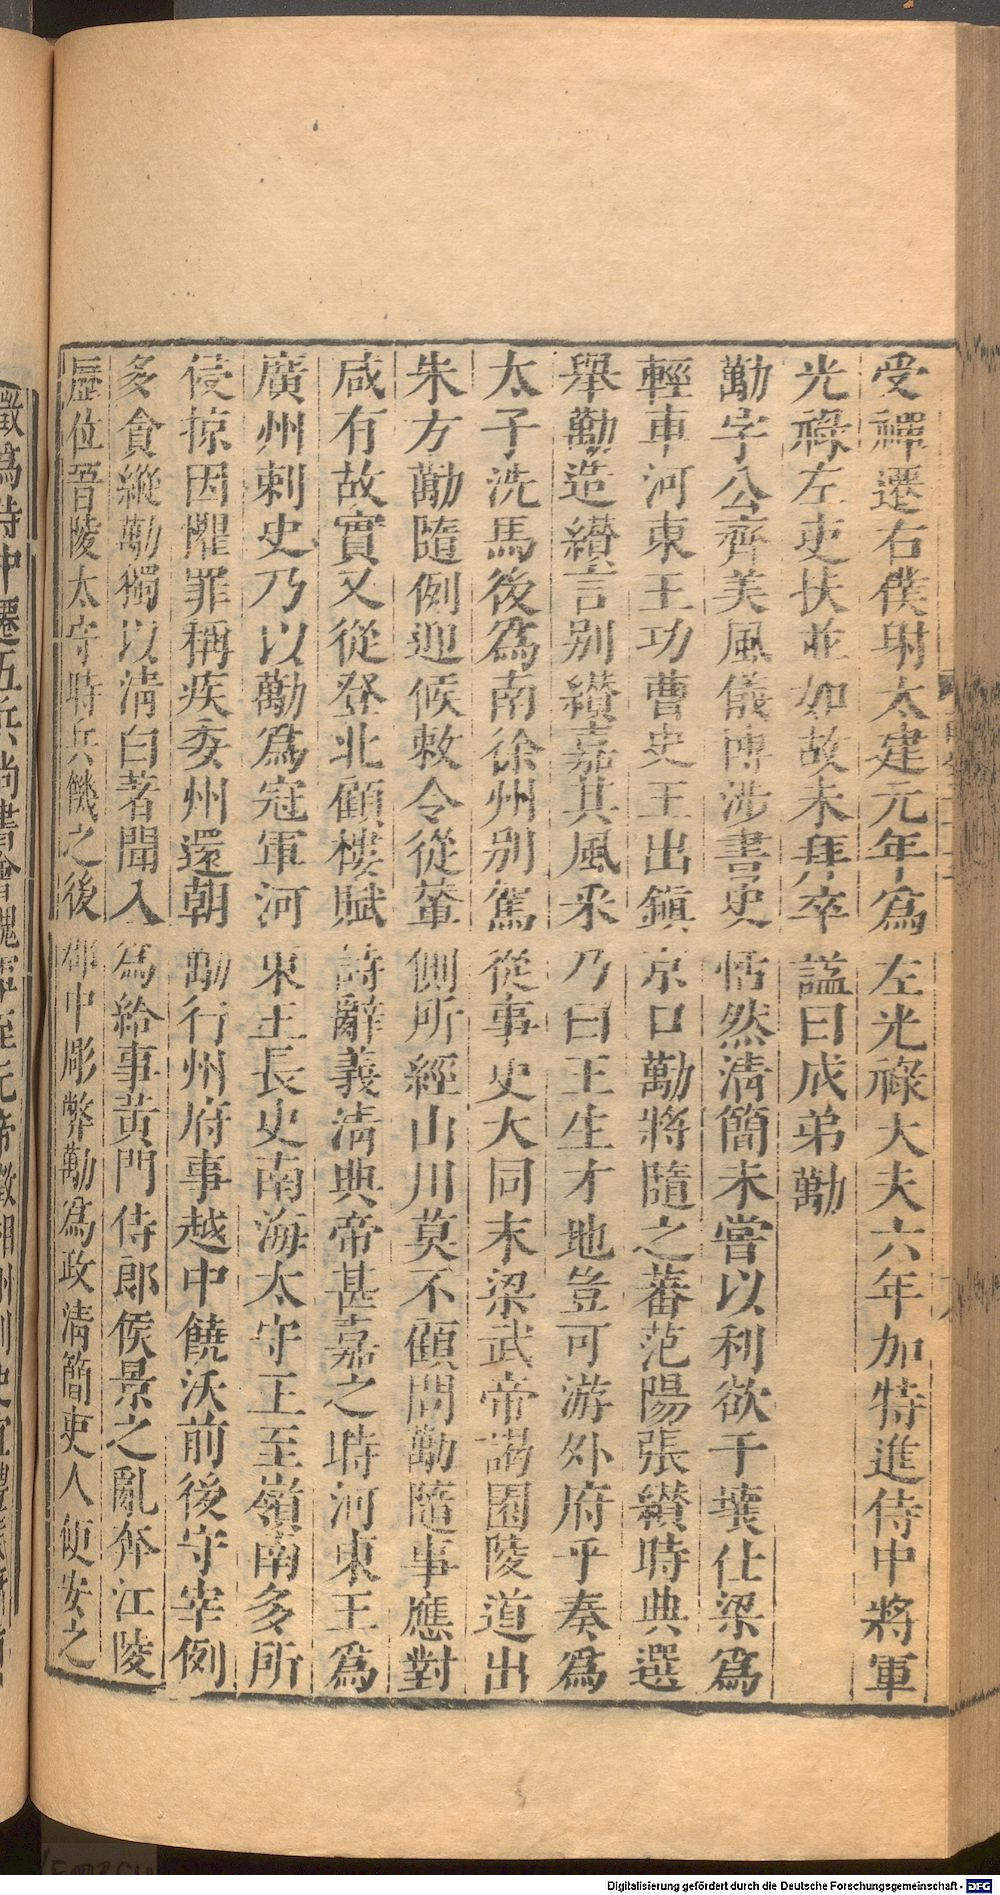 受禪遷右僕射太建元年爲左光祿大夫六年加特進侍中將軍
光祿左吏扶並如故未拜卒諡曰成弟勱
勱字公齊美風儀博涉書史恬然淸簡未嘗以利欲干懷仕梁爲
輕車河東王功曹史王出鎭京口勱將隨之蕃范陽張纘時典選
舉勱造纘言别纘嘉其風采乃曰王生才地豈可游外府乎奏爲
太子洗馬後爲南徐州别駕從事史大同末梁武帝謁園陵道出
朱方勱隨例迎候敕令從輦側所經山川莫不顧問勱隨事應對
咸有故實又從登北顧樓賦詩辭義淸典帝甚嘉之時河東王爲
廣州刺史乃以勱爲冠軍河東王長史南海太守王至嶺南多所
侵掠因懼罪稱疾委州還朝勱行州府事越中饒沃前後守宰例
多貪縱勱獨以淸白著聞入爲給事黃門侍郎侯景之亂奔江陵
歷位晉陵太守時兵饑之後郡中彫弊勱爲政淸簡吏人便安之
徵爲侍中遷五兵尚書會魏軍至元帝徵湘州刺史宜豐
Digitalisierung gefördert durch die Deutsche Forschungsgemeinschaft - DFG